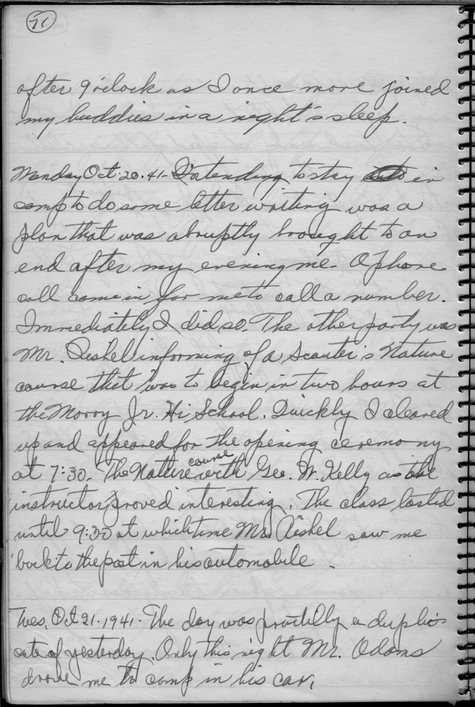 71
after 9 o'clock as I once more joined
my buddies in a night's sleep.
Monday Oct. 20. 41 - Intending to stay in
camp to do some letter writing was a
plan that was abruptly brought to an
end after my evening me. A phone
call came in for me to call a number.
Immediately I did so. The other party was
Mr. informing of a Scouter's Nature
course that was to begin in two hours at
the Jr. Hi School. Quickly I cleaned
up and appeared for the opening ceremony
at 7:30. The Nature course with Geo. W. Kelly as the
instructor proved interesting. The class lasted
until 9:30 at which time Mr. saw me
back to the post in his automobile.
Tues, Oct 21. 1941. The day was a duplic-
ate of yesterday. Only this night Mr. Adams
drove me to camp in his car.